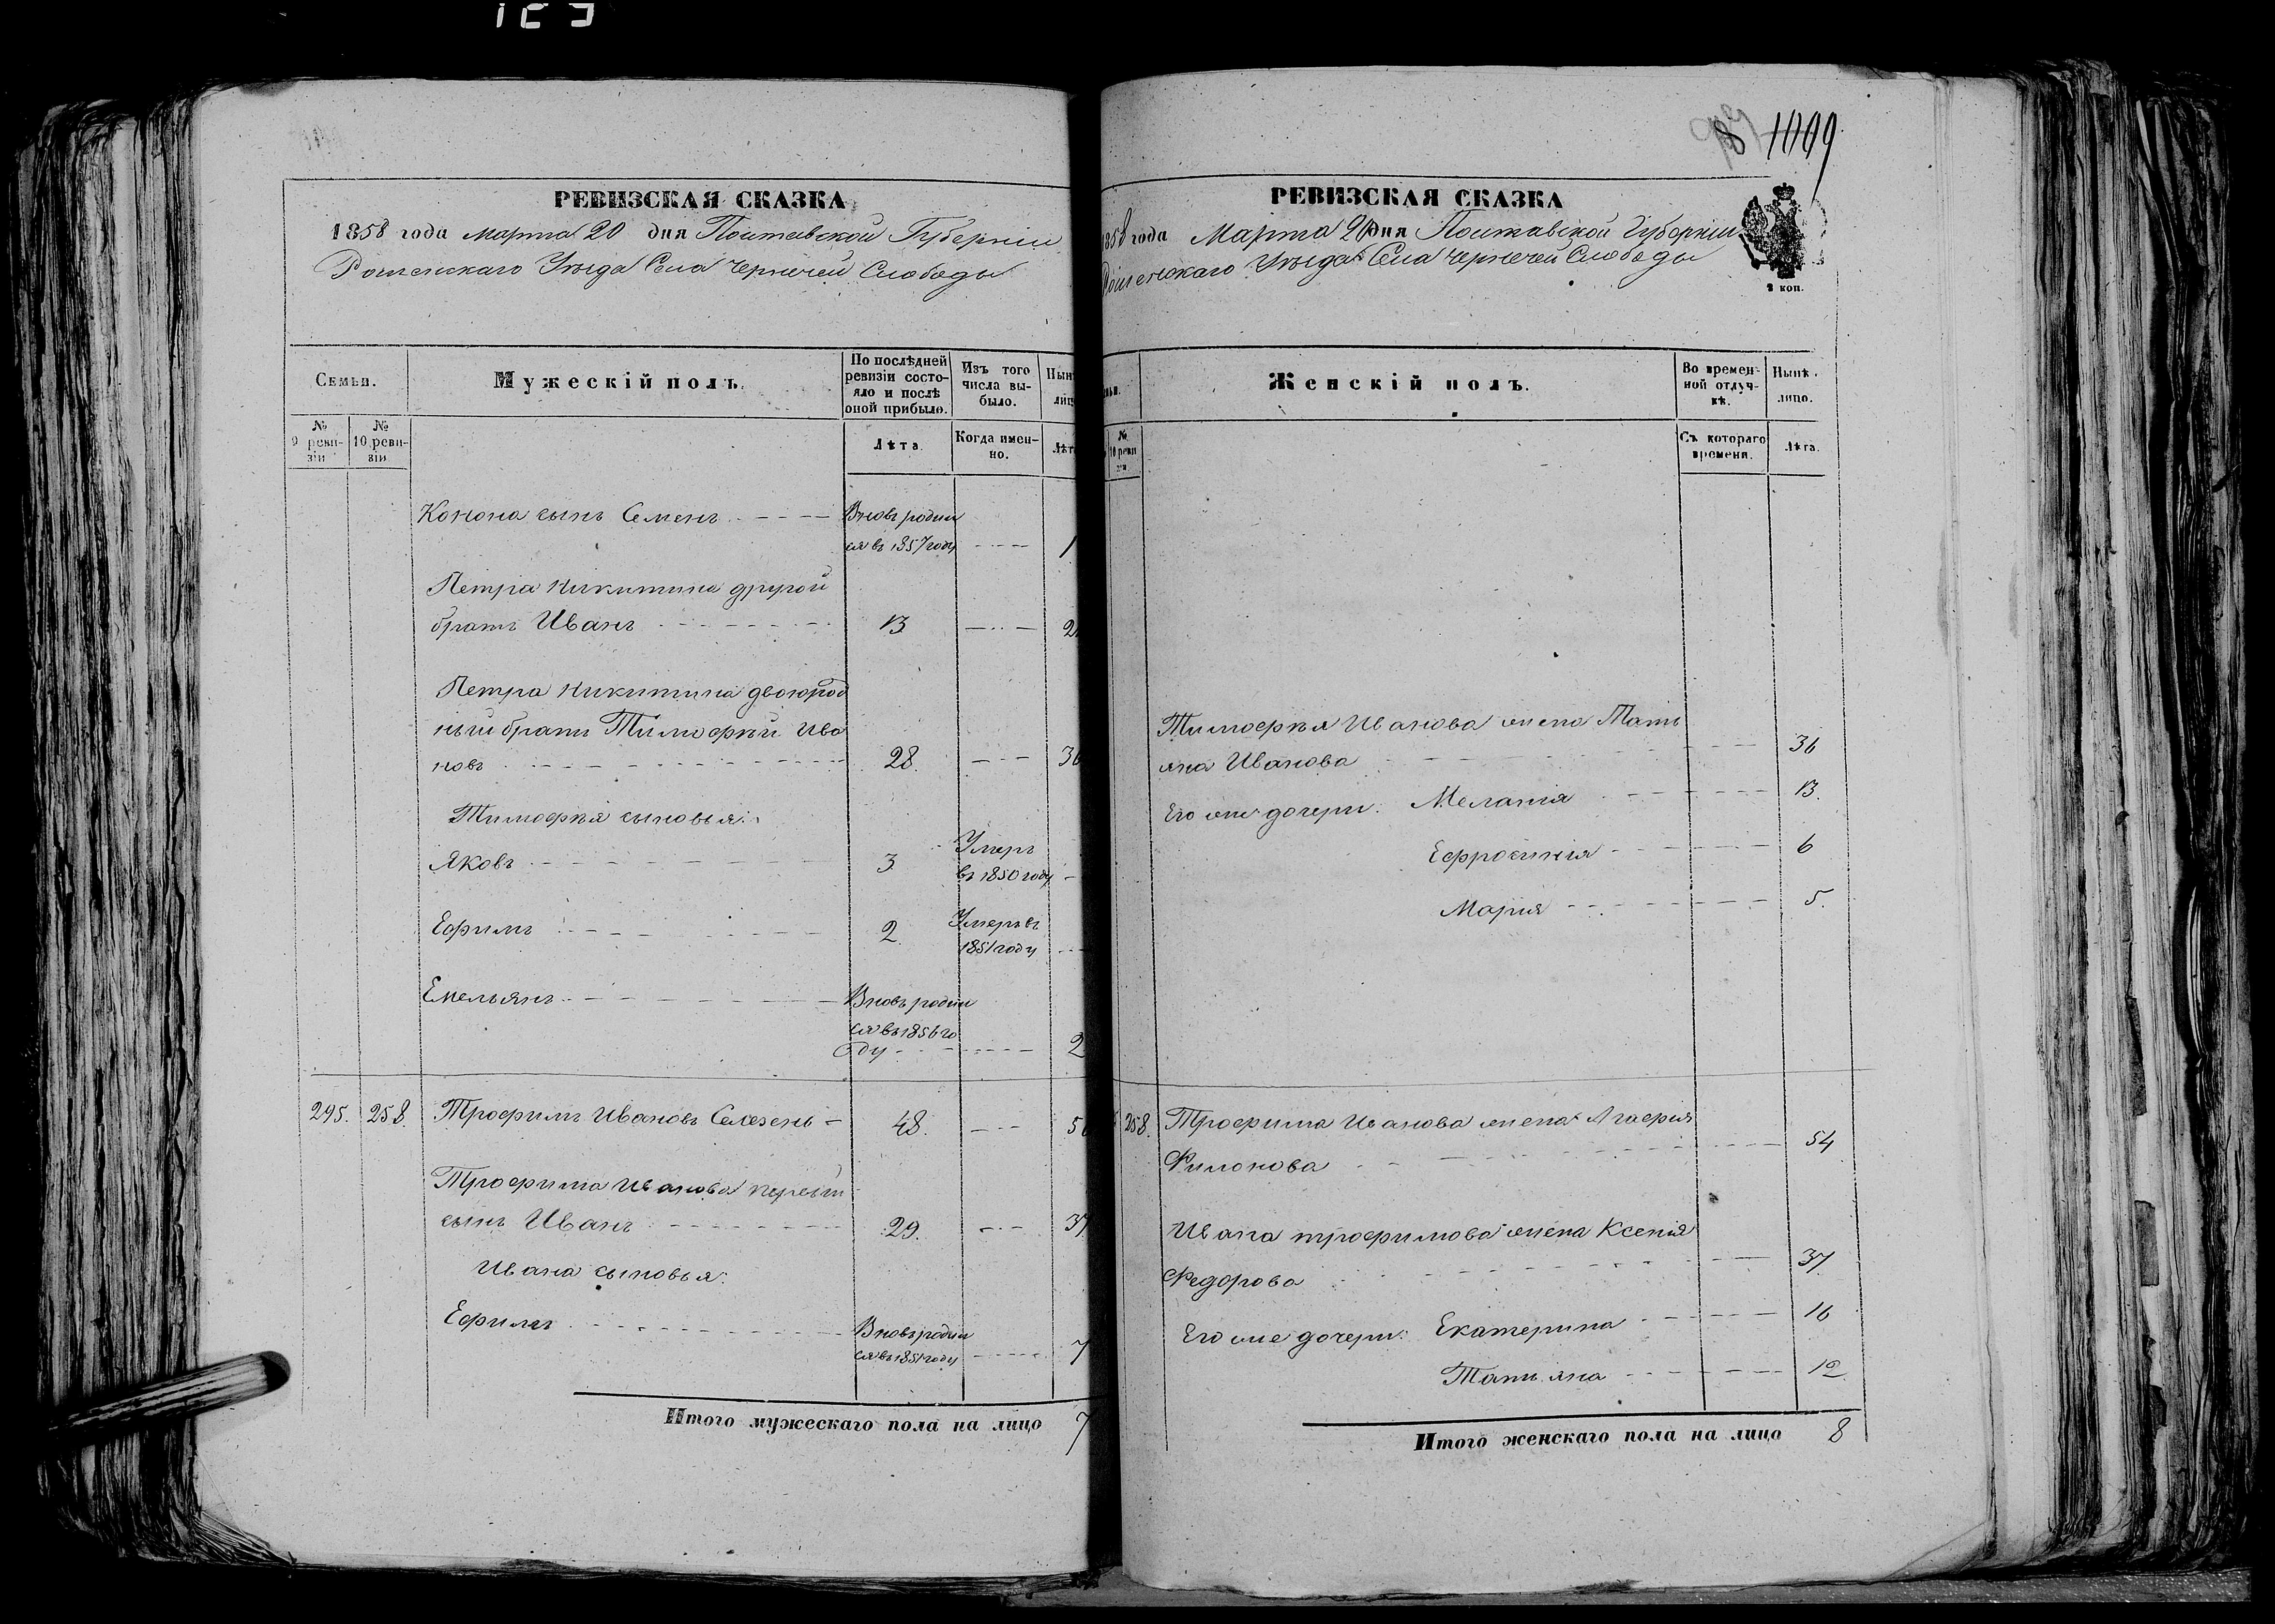 РЕВИЗСКАЯ СКАЗКА
1858 года Марта 20 дня Полтавской Губерніи
Роменскаго Уѣзда Села Чернечей Слободы
Семьи.
Мужескій полъ.
По послѣдней ревизіи состояло и послѣ оной прибыло.
Изъ того числа выбыло.
№ 9 ревизіи
№ 10 ревизіи
Лѣта.
Когда именно.
Конона сынъ Семенъ
Вновь родил
ся въ 1857 году
1
Петра Никитина другой
братъ Иванъ
13
Петра Никитина двоюрод
ный братъ Тимофѣй Ива
новъ
28.
36
Тимофѣя сыновья:
Яковъ
3
Умеръ
въ 1850 году
Ефимъ
2.
Умеръ въ
1851 году
Емельянъ
Вновь родил
ся въ 1856 го
ду
2
295.
258.
Трофимъ Ивановъ Селезень
48.
Трофима Иванова первый
сынъ Иванъ
29.
37
Ивана сыновья:
Ефимъ
Вновь родил
ся въ 1851 году
7
Итого мужескаго пола на лицо 7
1099
РЕВИЗСКАЯ СКАЗКА
1858 года Марта 20 дня Полтавской Губерніи
Роменскаго Уѣзда Села Чернечей Слободы
2 коп.
Женскій полъ.
Во временной отлучкѣ.
Нынѣ лицо.
№ 10 реви
Съ котораго времени.
Лѣта.
Тимофѣя Иванова жена Тать
яна Иванова
36
Его же дочери: Меланія
13.
Ефросинія
6
Марія
5.
258.
Трофима Иванова жена Агафія
Филонова
54
Ивана Трофимова жена Ксенія
Федорова
37
Его же дочери: Екатерина
16
Татьяна
12
Итого женскаго пола на лицо 8